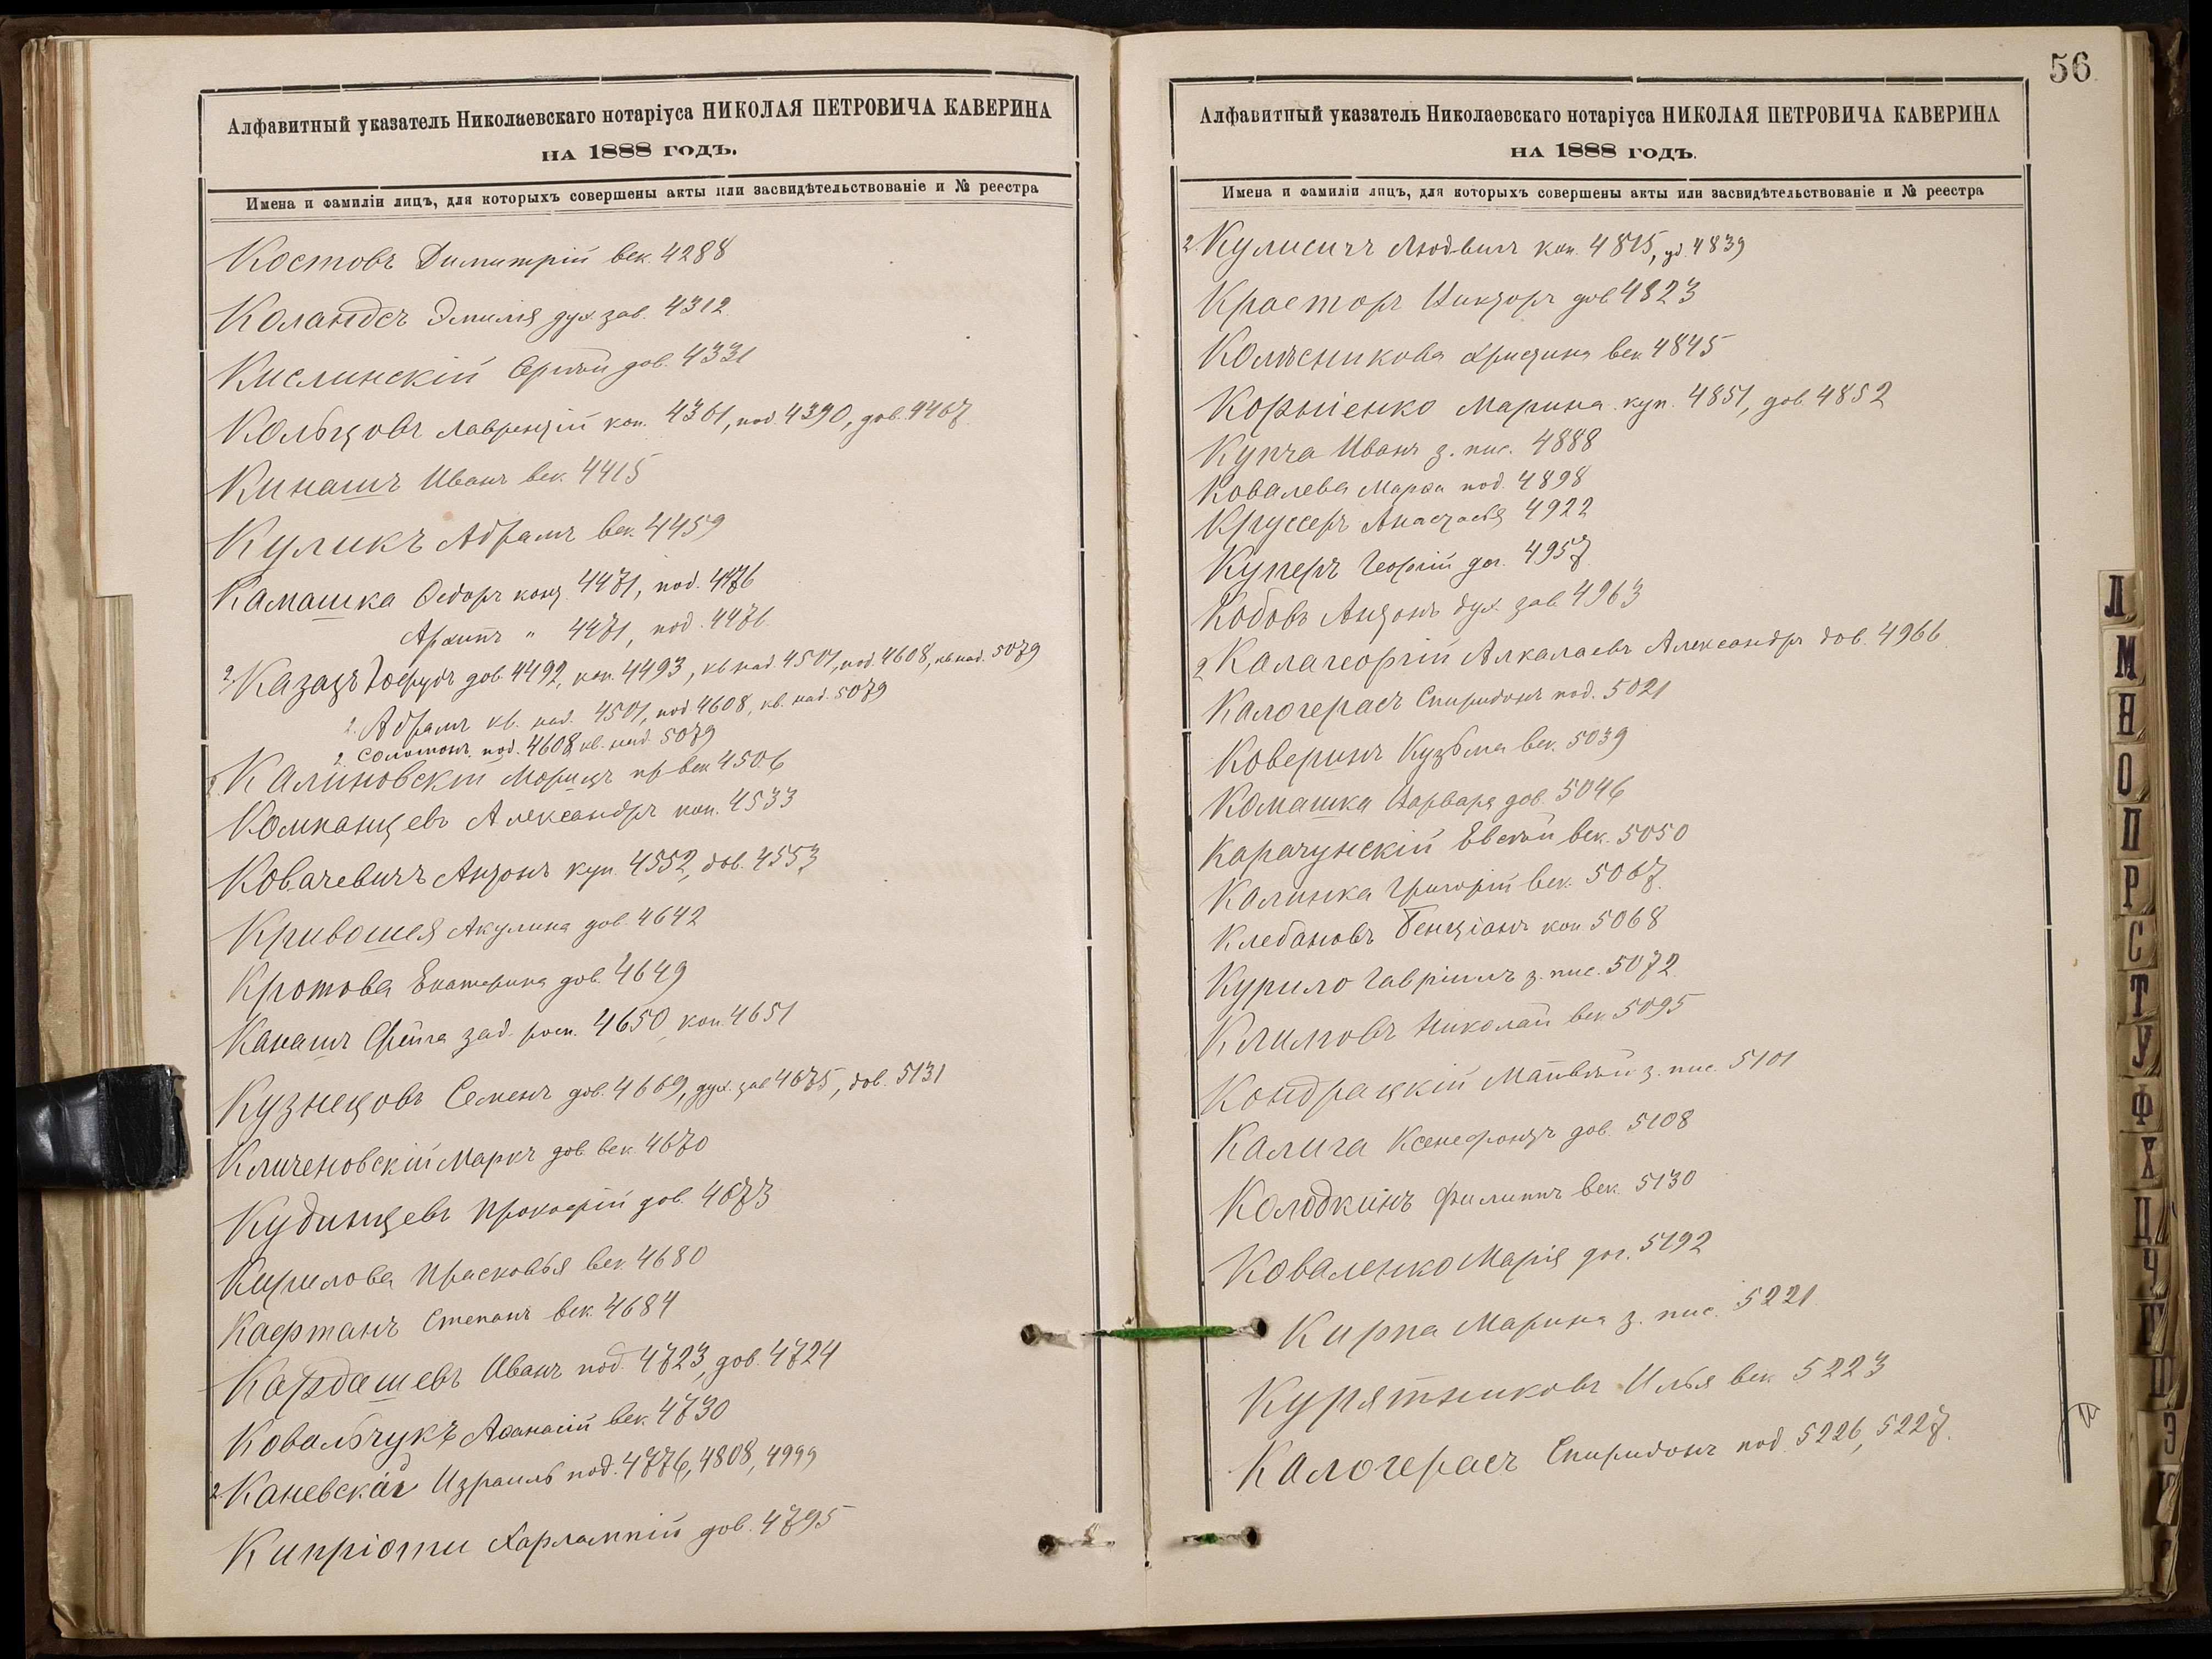 Алфавитный указатель Николаевскаго нотаріуса НИКОЛАЯ ПЕТРОВИЧА КАВЕРИНА
НА 1888 ГОДЪ.
Имена и фамиліи лицъ, для которыхъ совершены акты или засвидѣтельствованіе и № реестра
Костовъ Димитрій век. 4288
Коландсъ Эмилія дух. зав. 4312
Кислинскій Сергѣй дов. 4331
Кольцовъ Лаврентій коп. 4361, под. 4390, дов. 4467
Кинашъ Иванъ век. 4415
Куликъ Абрамъ век. 4459
Камашка Ѳедоръ конт. 4471, под. 4476
Архипъ " 4471, под. 4476
2. Казацъ дов. 4492, коп. 4493, кв. над. 4501, под. 4608, кв. над. 5079
2. Абрамъ кв. над. 4501, под. 4608, кв. над. 5079
2. Соломонъ под. 4608 кв. над. 5079
Калиновскій Морицъ пр. век. 4506
Компанцевъ Александръ коп. 4533
Ковачевичъ Антонъ куп. 4552, дов. 4553
Кривошея Акулина дов. 4642
Кротова Екатерина дов. 4649
Канашъ Фейга зад. росп. 4650, коп. 4651
Кузнецовъ Семенъ дов. 4669, дух. зав. 4675, дов. 5131
Кличеновскій Маркъ дов. век. 4670
Кудинцевъ Прокофій дов. 4673
Кирилова Прасковья век. 4680
Кафтанъ Степанъ век. 4684
Кардашевъ Иванъ под. 4723, дов. 4724
Ковальчукъ Аѳанасій век. 4730
2. Каневскій Израиль под. 4776, 4808, 4999
Кипріоти Харлампій дов. 4795
56
Алфавитный указатель Николаевскаго нотаріуса НИКОЛАЯ ПЕТРОВИЧА КАВЕРИНА
НА 1888 ГОДЪ.
Имена и фамиліи лицъ, для которыхъ совершены акты или засвидѣтельствованіе и № реестра
2. Кулисичъ Людвигъ коп. 4815, уд. 4839
Красторъ Викторъ дов. 4823
Колѣсникова Христина век. 4845
Корніенко Марина куп. 4851, дов. 4852
Купча Иванъ з. пис. 4888
Ковалева Марѳа под. 4898
Круссеръ Анастасія 4922
Куперъ Георгій дог. 4957
Кобовъ Антонъ дух. зав. 4963
2. Калагеоргій Алкалаевъ Александръ дов. 4966
Калогерасъ Спиридонъ под. 5021
Коверинъ Кузьма век. 5039
Комашка Варвара дов. 5046
Карачунскій Евсѣй век. 5050
Калинка Григорій век. 5067
Клебановъ Бенціанъ коп. 5068
Курило Гавріилъ з. пис. 5072
Климовъ Николай век. 5095
Кондрацкій Матвѣй з. пис. 5101
Калига Ксенофонтъ дов. 5108
Колодкинъ Филиппъ век. 5130
Коваленко Марія дог. 5192
Кирпа Марина з. пис. 5221
Курятниковъ Илья век. 5223
Калогерасъ Спиридонъ под. 5226, 5227.
Л
М
Н
О
П
Р
С
Т
У
Ф
Х
Ц
Ч